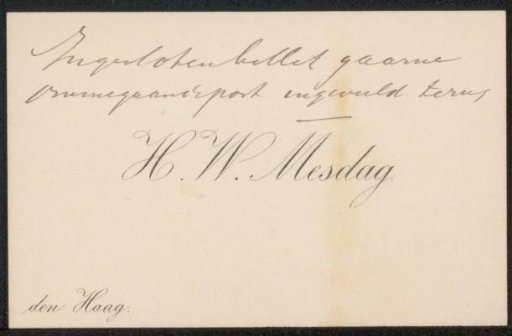 Ingesloten billet gaarne
ommegaande post ingevuld terug
H. W. Mesdag
den Haag.